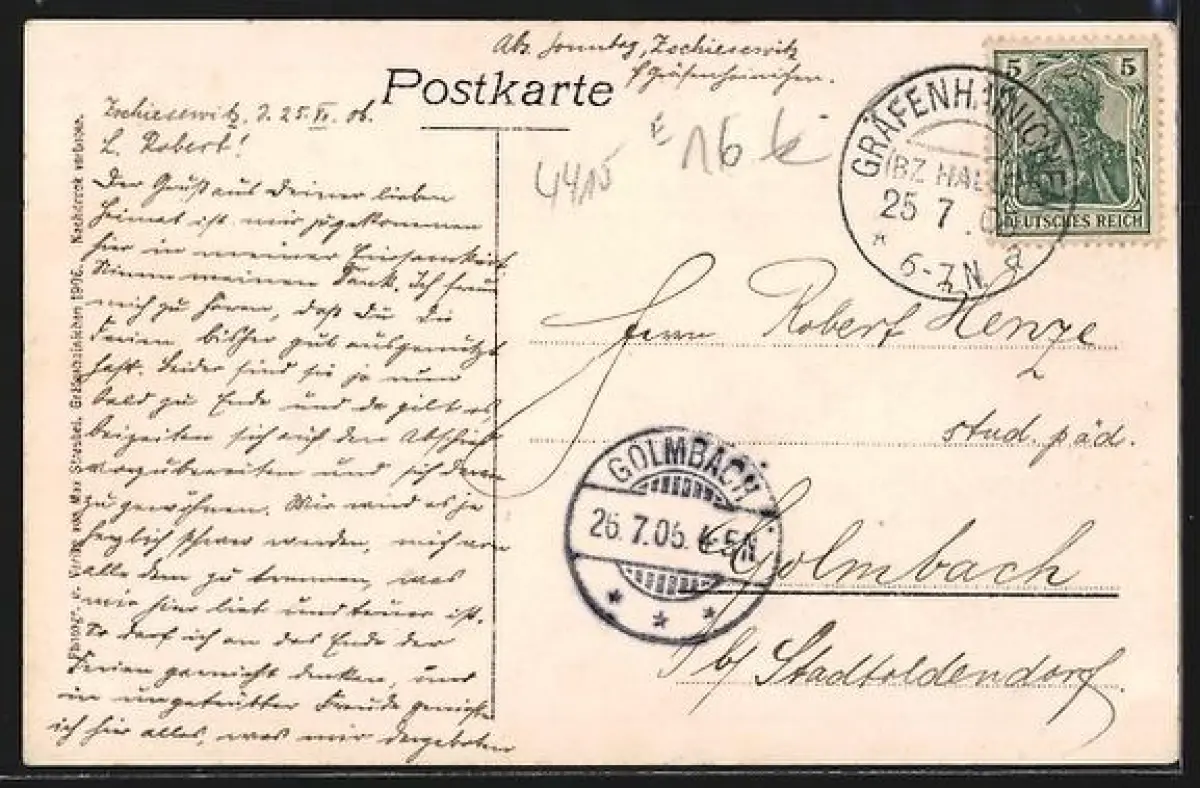 Abs. Sonntag, Zschiesewitz
b/Gräfenheinichen.
Postkarte
Zschiesewitz, d. 25. VII. 06.
L. Robert!
Der Gruß aus Deiner lieben
Heimat ist mir zugekommen
hier in meiner Einsamkeit.
Nimm meinen Dank. Ich freue
mich zu hören, daß Du die
Ferien bisher gut ausgenützt
hast. Leider sind sie ja nun
bald zu Ende und da gilt es,
beizeiten sich auf den Abschied
vorzubereiten und sich daran
zu gewöhnen. Mir wird es ja
herzlich schwer werden, mich von
alle dem zu trennen, was
mir hier lieb und teuer ist.
So darf ich an das Ende der
Ferien garnicht denken, und
in ungetrübter Freude genieße
ich hier alles, was mir dargeboten
Photogr. u. Verlag von Max Straubel, Gräfenhainichen 1906. Nachdruck verboten.
4415
16 k
GRÄFENHAINICHEN
(BZ. HALLE)
25 7.06
6-7N.
* a
5 5
DEUTSCHES REICH
Herrn Robert Henze
stud. päd.
Golmbach
b/ Stadtoldendorf.
GOLMBACH
26.7.06. 4-5N
* * *